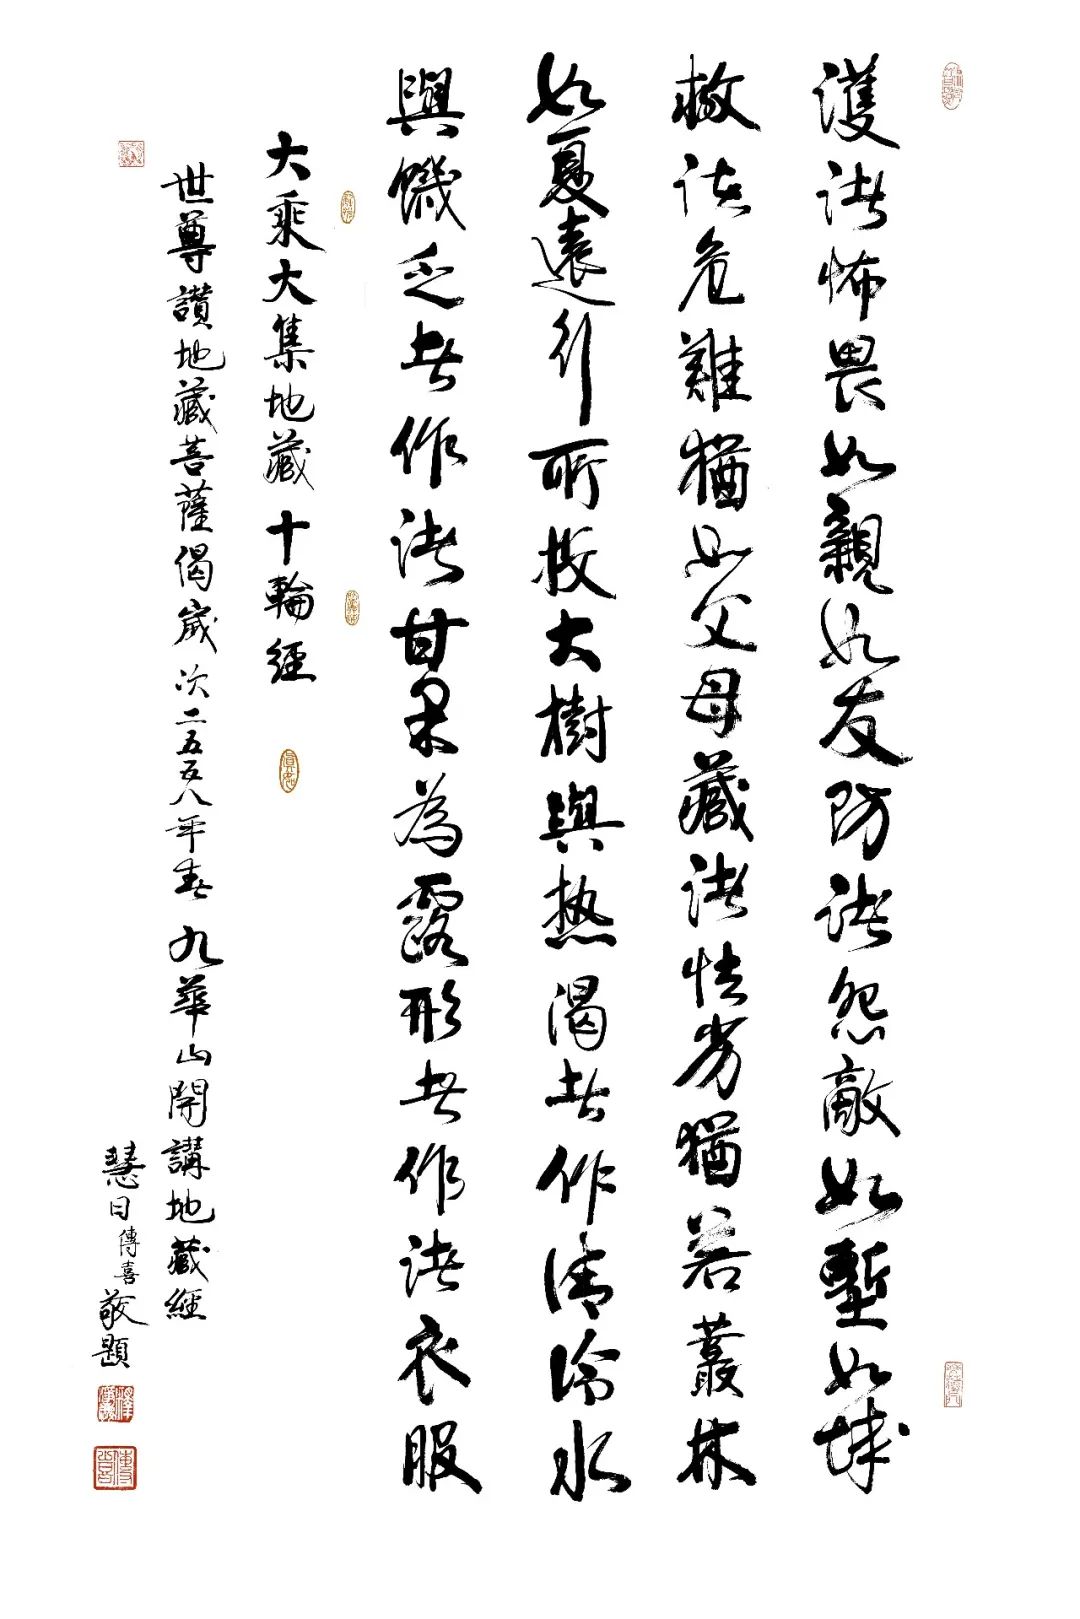 護諸怖畏如親如友防諸怨敵如塹如城
救諸危難猶如父母藏諸怯劣猶若叢林
如夏遠行所投大樹與热渴者作清冷水
與饑乏者作諸甘果為露形者作諸衣服
大乘大集地藏十輪經
世尊讚地藏菩薩偈歲次二五五八年春九華山開講地藏經
慧日傳喜敬題